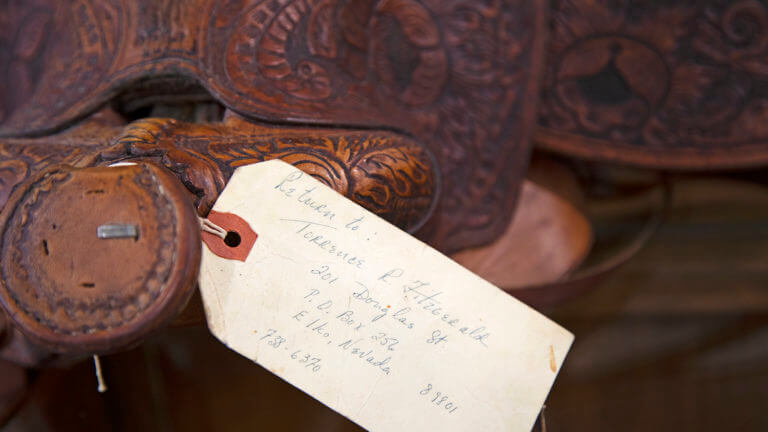 Return to:
Torrence R. Fitzgerald
201 Douglas St.
P.O. Box 256
Elko, Nevada
89801
738-6370